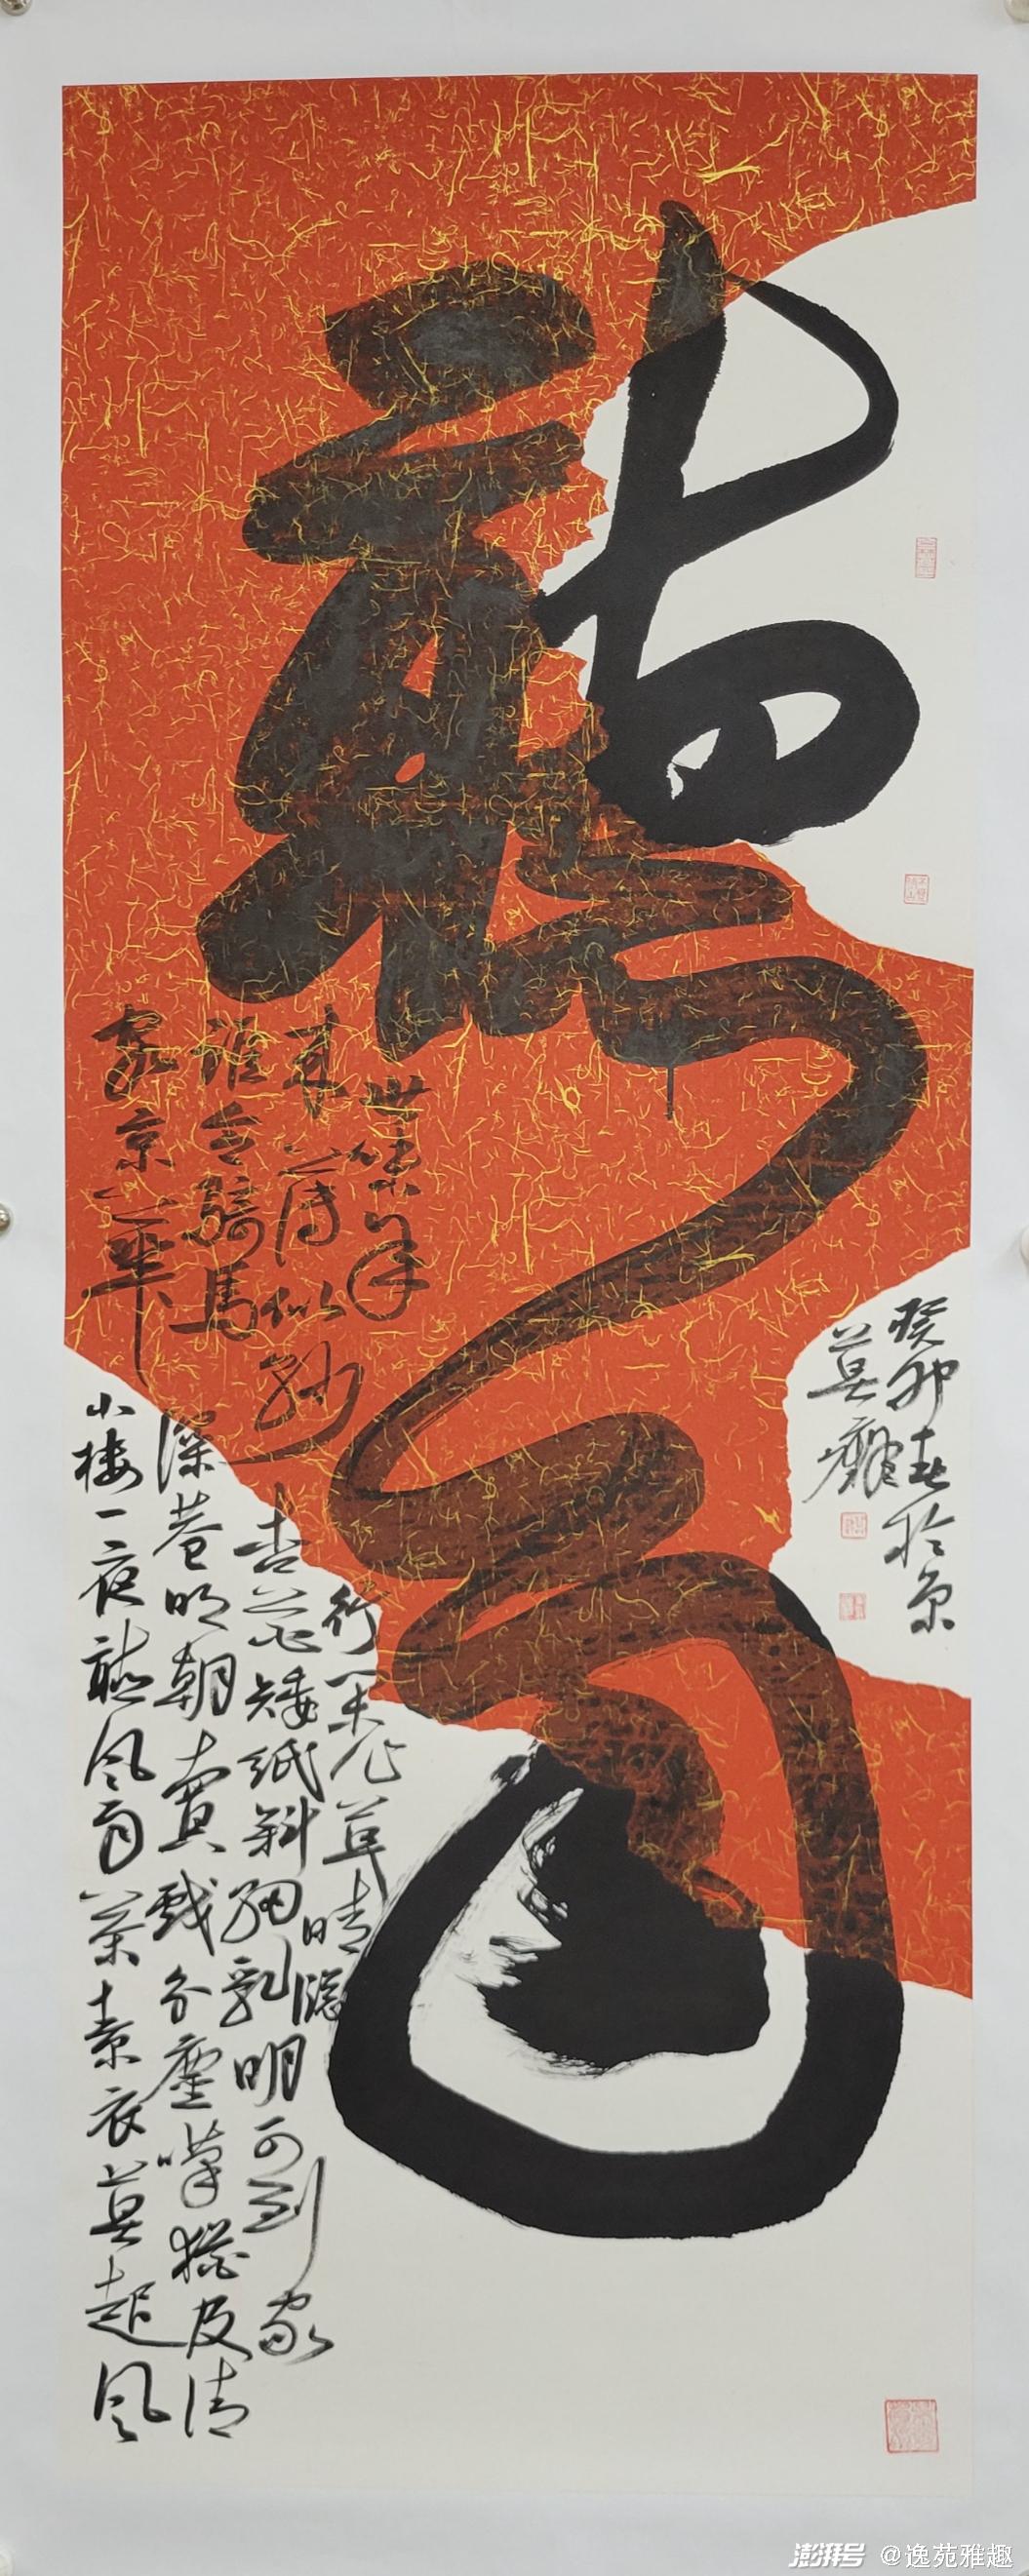 聽雨
世味年
来薄似紗
谁令騎馬
客京華
小楼一夜聽风雨
深巷明朝賣
杏花矮紙斜
行閑作草晴窗
細乳
戲分
茶素衣莫起风
塵嘆猶及清
明可到家
癸卯春於京
莫
澎湃号 @逸苑雅趣